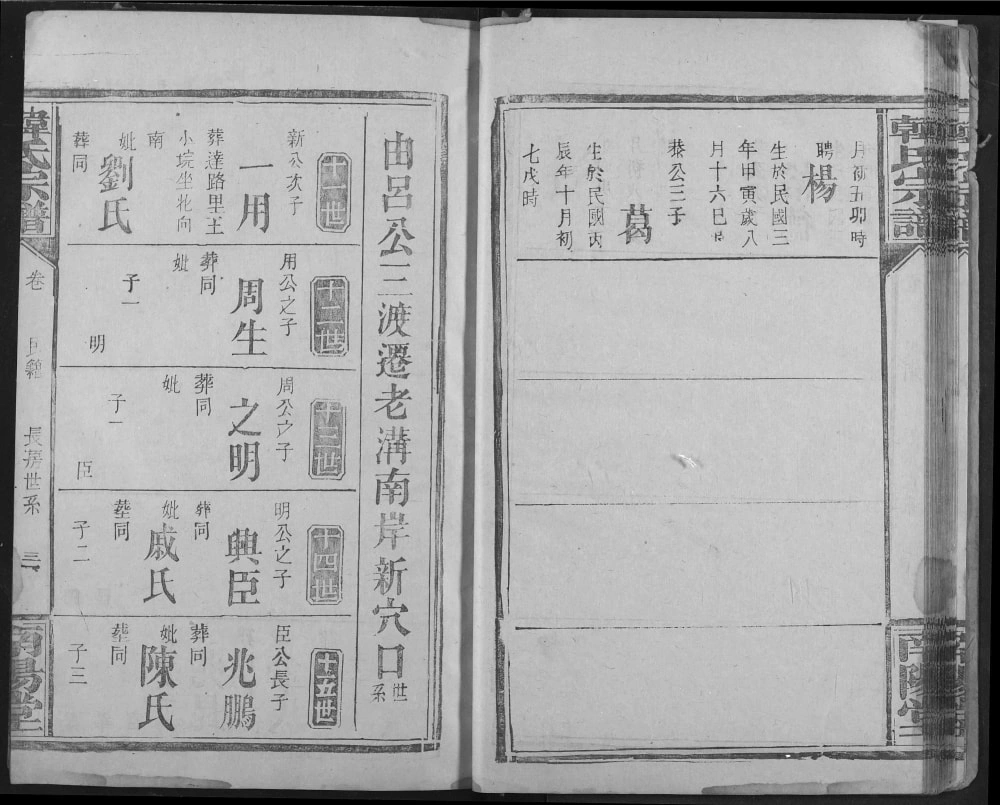 韓氏宗譜
南陽堂
月初五卯時
聘楊
生於民國三
年甲寅歲八
月十六巳時
恭公三子
葛
生於民國丙
辰年十月初
七戌時
由呂公三渡遷老溝南岸新穴口世系
十一世
新公次子
一用
葬達路里王
小垸坐北向
南
妣劉氏
葬同
十二世
用公之子
周生
葬同
妣
子一
明
十三世
周公之子
之明
葬同
妣
子一
臣
十四世
明公之子
興臣
葬同
妣戚氏
葬同
子二
十五世
臣公長子
兆鵬
葬同
妣陳氏
葬同
子三
韓氏宗譜
卷
長房世系
三
南陽堂